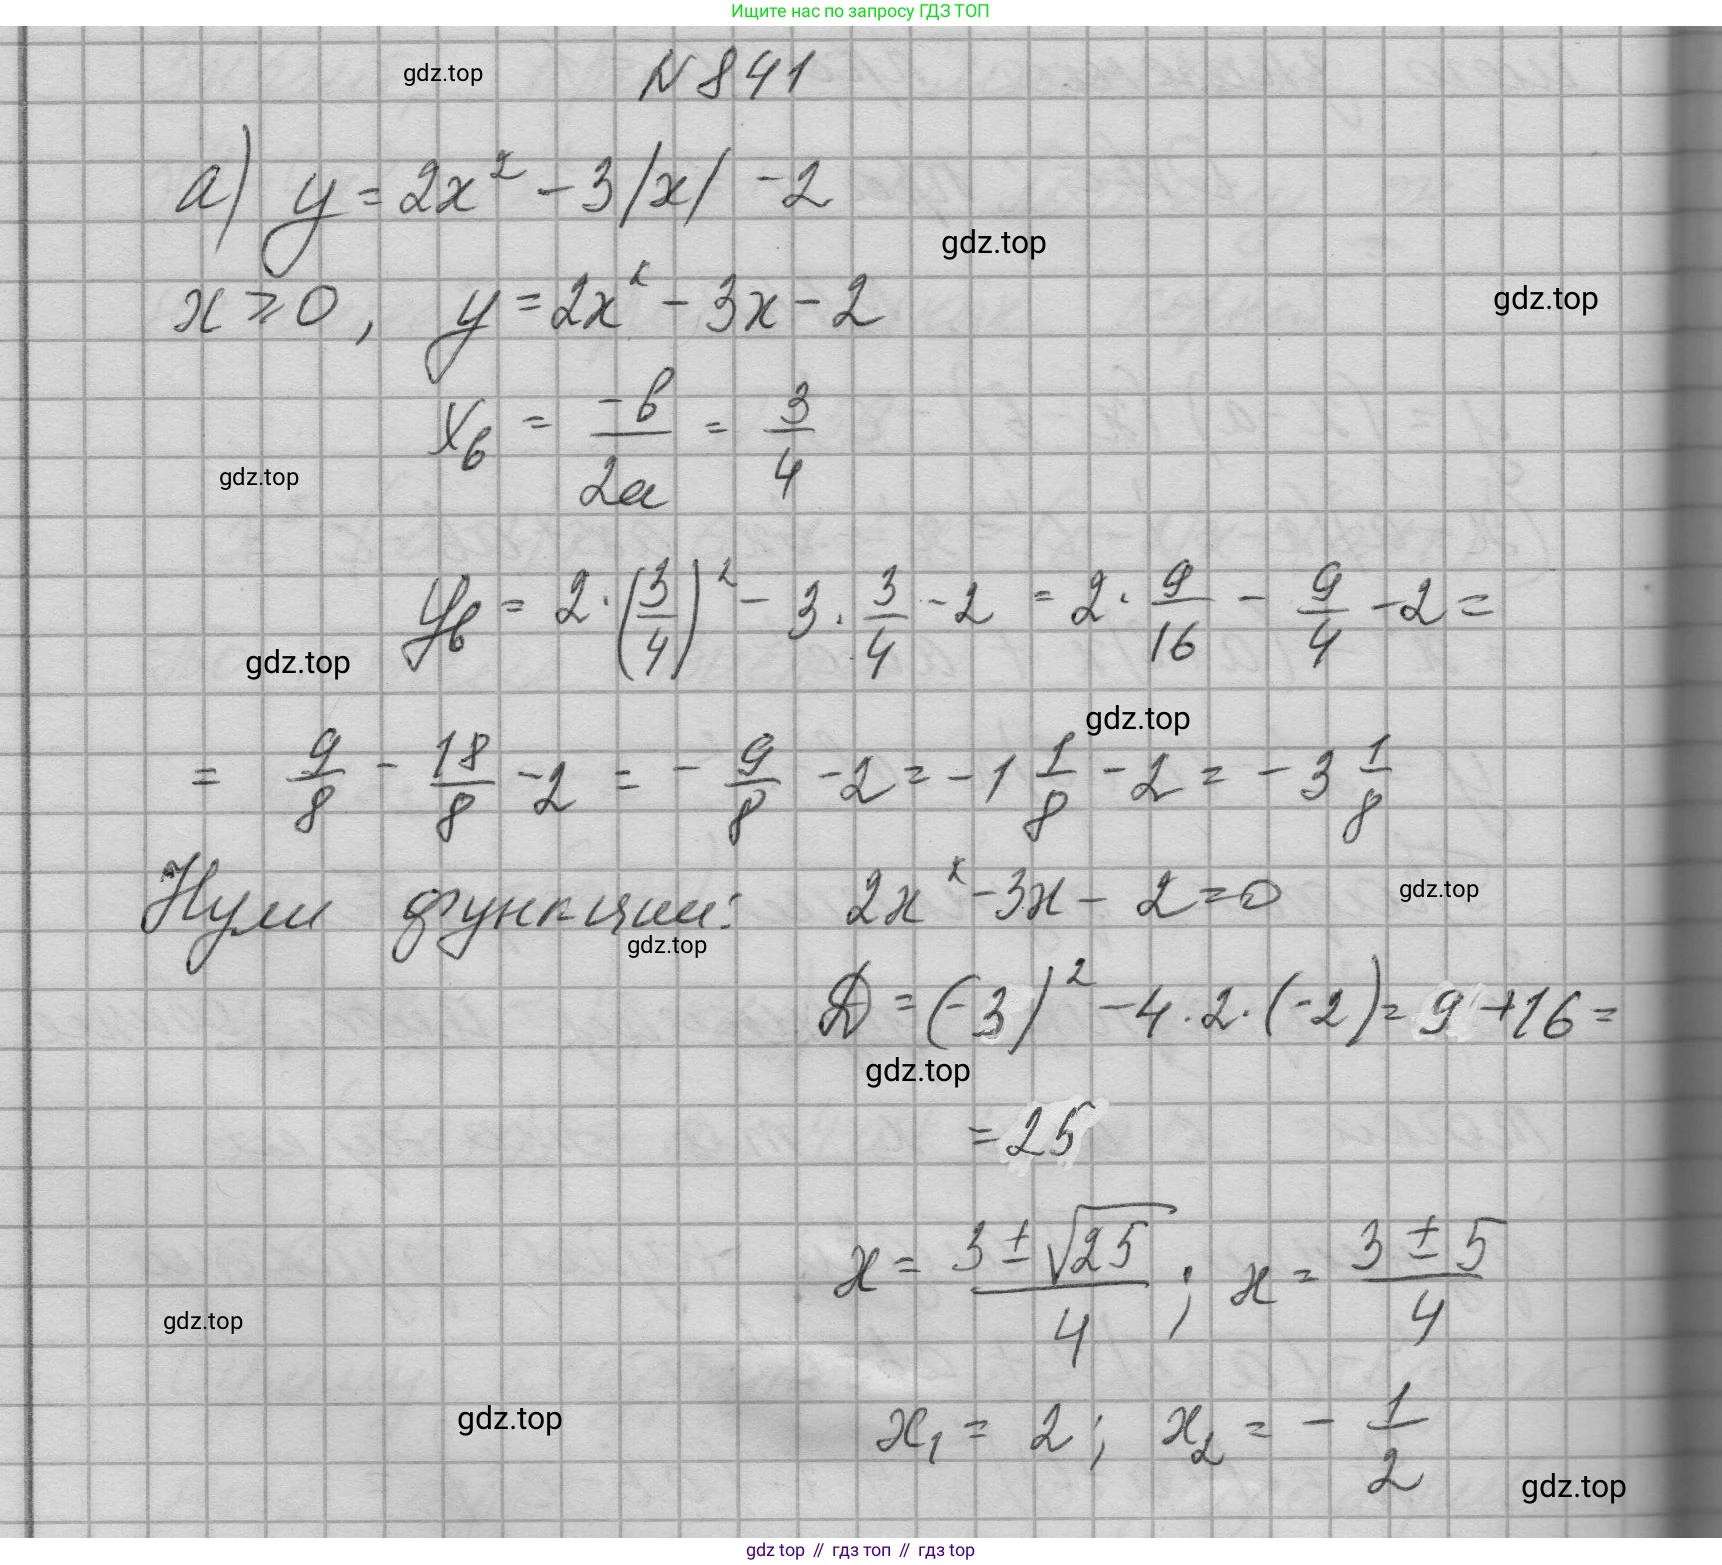 Ищите нас по запросу ГДЗ ТОП
gdz.top
N 841
а) y = 2x² - 3|x| - 2
gdz.top
x ≥ 0, y = 2x² - 3x - 2
gdz.top
xв = -b/2a = 3/4
gdz.top
yв = 2·(3/4)² - 3·3/4 - 2 = 2·9/16 - 9/4 - 2 =
gdz.top
gdz.top
= 9/8 - 18/8 - 2 = - 9/8 - 2 = -1 1/8 - 2 = -3 1/8
Нули функции: 2x² - 3x - 2 = 0
gdz.top
gdz.top
D = (-3)² - 4·2·(-2) = 9 + 16 =
gdz.top
= 25
x = (3 ± √25)/4 ; x = (3 ± 5)/4
gdz.top
x₁ = 2; x₂ = - 1/2
gdz.top
gdz.top
gdz top // гдз топ // гдз top